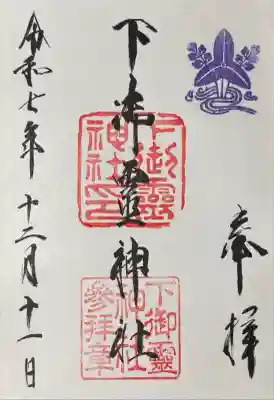 奉拝
下御靈神社
下御靈神社印
下御靈神社参拝章
令和七年十二月十一日